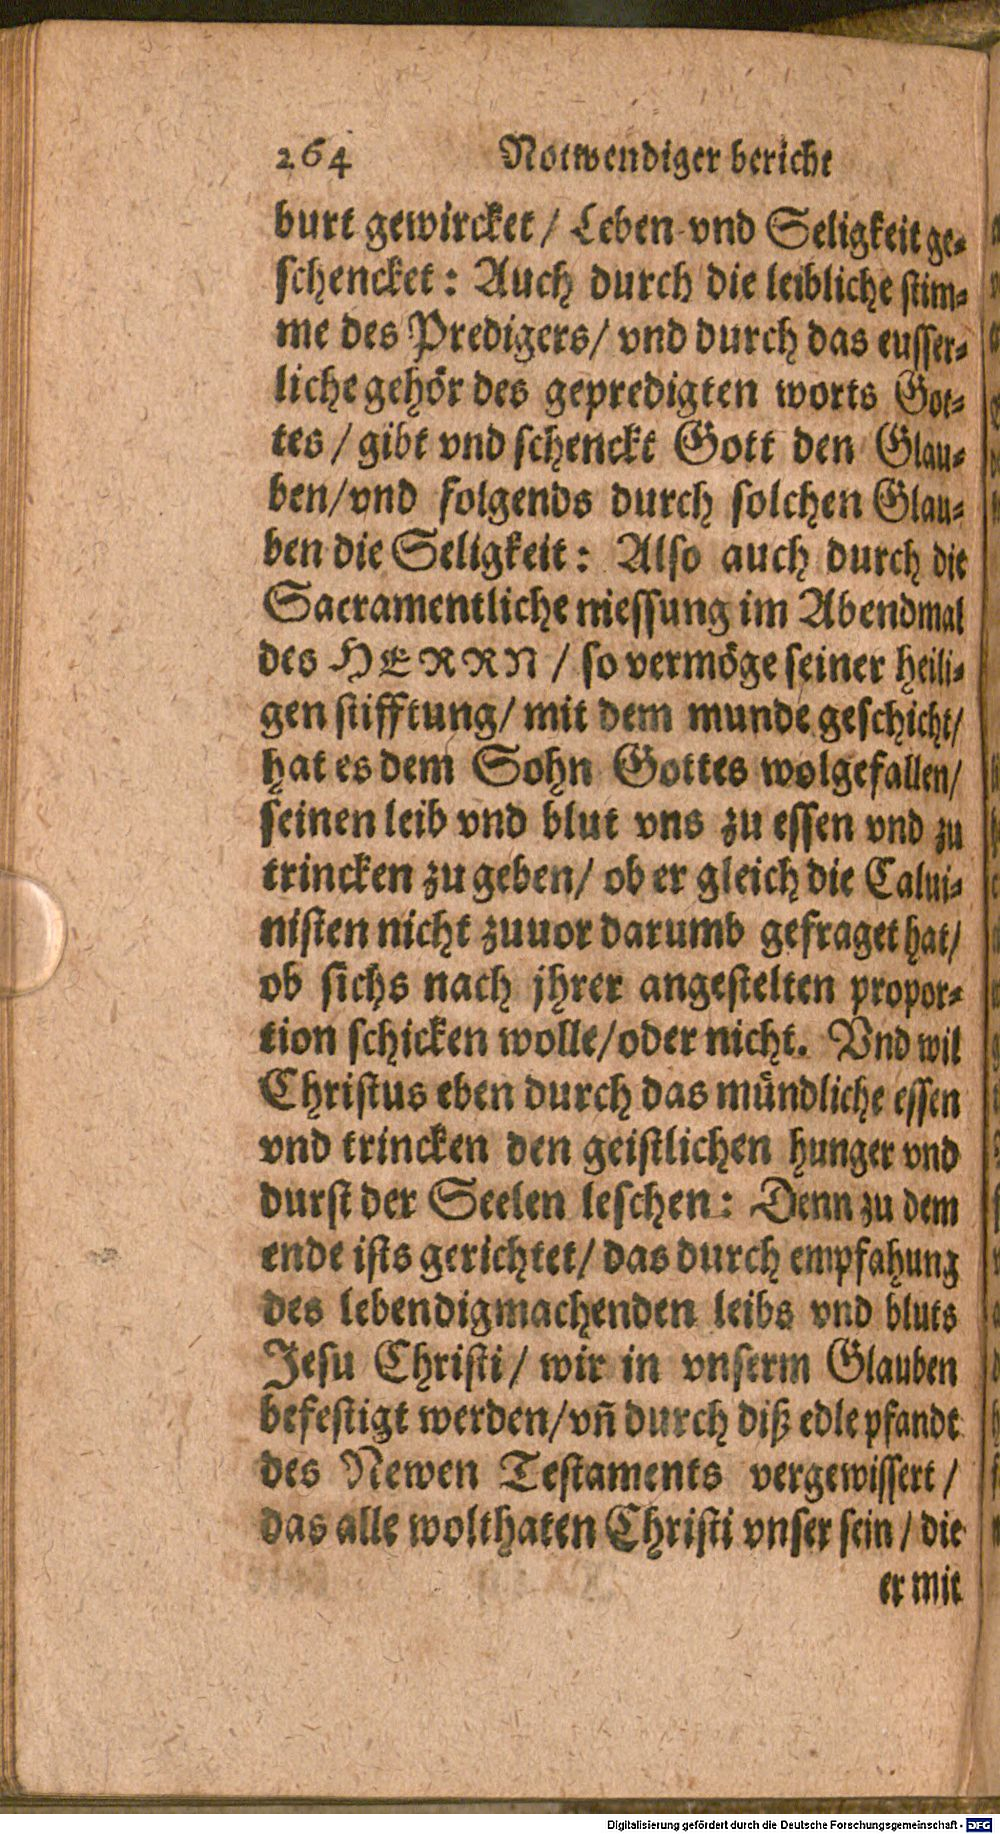 264 Notwendiger bericht
burt gewircket / Leben vnd Seligkeit ge-
schencket: Auch durch die leibliche stim-
me des Predigers/ vnd durch das eusser-
liche gehör des gepredigten worts Got-
tes / gibt vnd schenckt Gott den Glau-
ben/vnd folgends durch solchen Glau-
ben die Seligkeit: Also auch durch die
Sacramentliche niessung im Abendmal
des HERRN / so vermöge seiner heili-
gen stifftung/ mit dem munde geschicht/
hat es dem Sohn Gottes wolgefallen/
seinen leib vnd blut vns zu essen vnd zu
trincken zu geben/ ob er gleich die Calui-
nisten nicht zuuor darumb gefraget hat/
ob sichs nach jhrer angestelten propor-
tion schicken wolle/oder nicht. Vnd wil
Christus eben durch das mündliche essen
vnd trincken den geistlichen hunger vnd
durst der Seelen leschen: Denn zu dem
ende ists gerichtet/ das durch empfahung
des lebendigmachenden leibs vnd bluts
Jesu Christi / wir in vnserm Glauben
befestigt werden/vn̄ durch diß edle pfandt
des Newen Testaments vergewissert /
das alle wolthaten Christi vnser sein / die
er mit
Digitalisierung gefördert durch die Deutsche Forschungsgemeinschaft - DFG